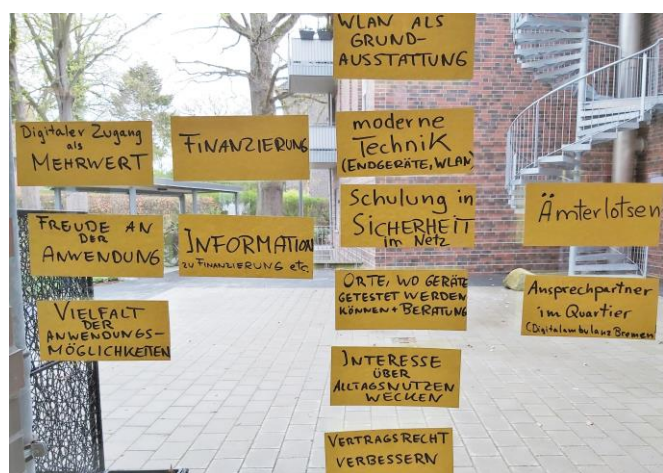 Digitaler Zugang
als
MEHRWERT
FREUDE AN
DER
ANWENDUNG
VIELFALT
DER
ANWENDUNGS-
MÖGLICHKEITEN
FINANZIERUNG
INFORMATION
ZU FINANZIERUNG etc.
WLAN ALS
GRUND-
AUSSTATTUNG
moderne
Technik
(ENDGERÄTE, WLAN)
Schulung in
SICHERHEIT
im Netz
ORTE, WO GERÄTE
GETESTET WERDEN
KÖNNEN + BERATUNG
INTERESSE
ÜBER
ALLTAGSNUTZEN
WECKEN
VERTRAGSRECHT
VERBESSERN
Ämterlotsen
Ansprechpartner
im Quartier
(Digitalambulanz Bremen)